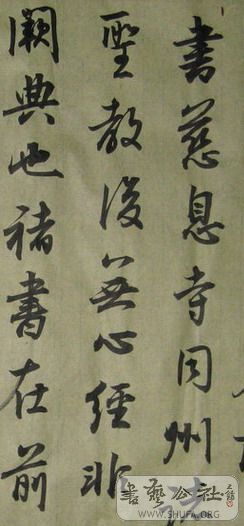 書慈恩寺同州
聖教後無心經非
闕典也褚書在前
書藝公社
WWW.SHUFA.ORG